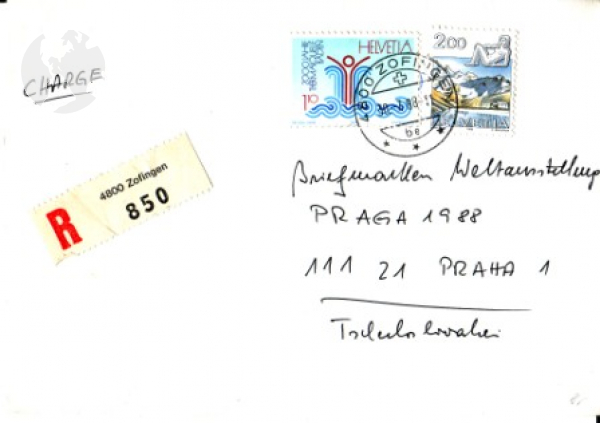 CHARGE
HELVETIA
110
200
HELVETIA
4800 ZOFINGEN
4800 Zofingen
R
850
Briefmarken Weltausstellung
PRAGA 1988
111 21 PRAHA 1
Tschechoslowakei